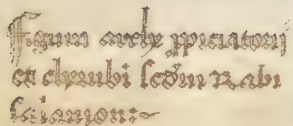 Figura arche ppiciatorij
et cherubi scdm Rabi
salamonē